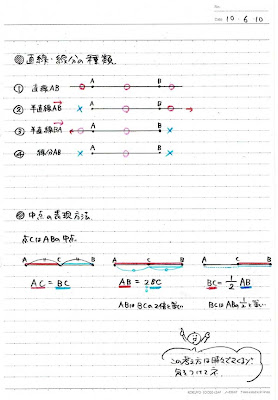 No.
Date 10・6・10
◎直線・線分の種類.
① 直線AB
A B
② 半直線AB
A B
③ 半直線BA
A B
④ 線分AB
A B
◎中点の表現方法.
点CはABの中点.
A C B
A C B
C B
AC = BC
AB = 2BC
BC = 1/2 AB
ABはBCの2倍と等しい
BCはABの1/2と等しい
この考え方は時々でてくるが
気をつけてネ